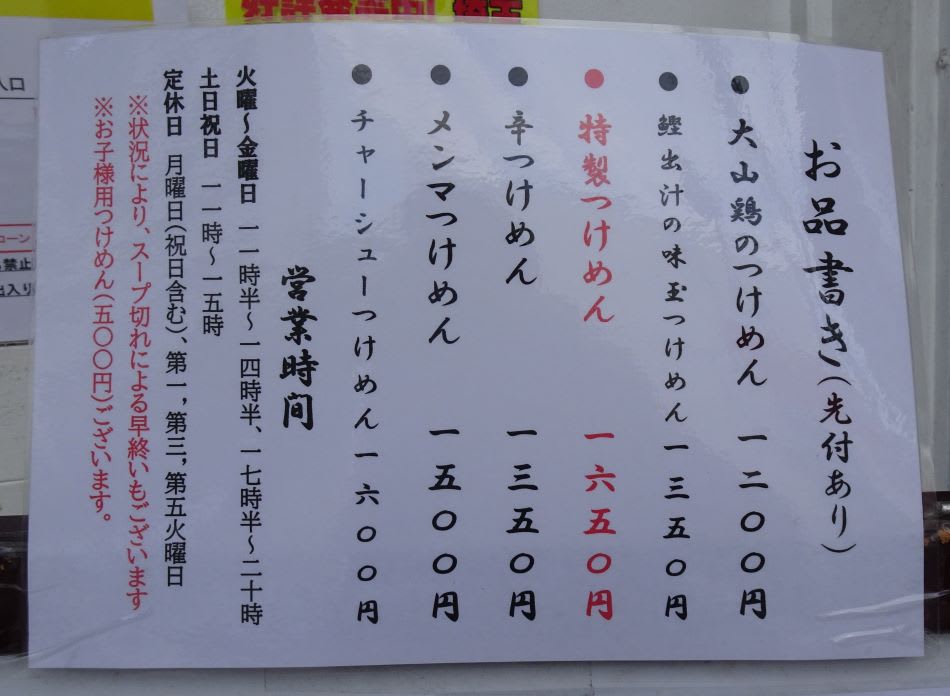 お品書き(先付あり)
●大山鶏のつけめん 一二〇〇円
●鰹出汁の味玉つけめん 一三五〇円
●特製つけめん 一六五〇円
●辛つけめん 一三五〇円
●メンマつけめん 一五〇〇円
●チャーシューつけめん 一六〇〇円
営業時间
火曜～金曜日 一一時半～一四時半、一七時半～二十時
土日祝日 一一時～一五時
定休日 月曜日(祝日含む)、第一，第三，第五火曜日
※状況により、スープ切れによる早終いもございます
※お子様用つけめん(五〇〇円)ございます。
入口
コーン
禁止
出入り
埼玉